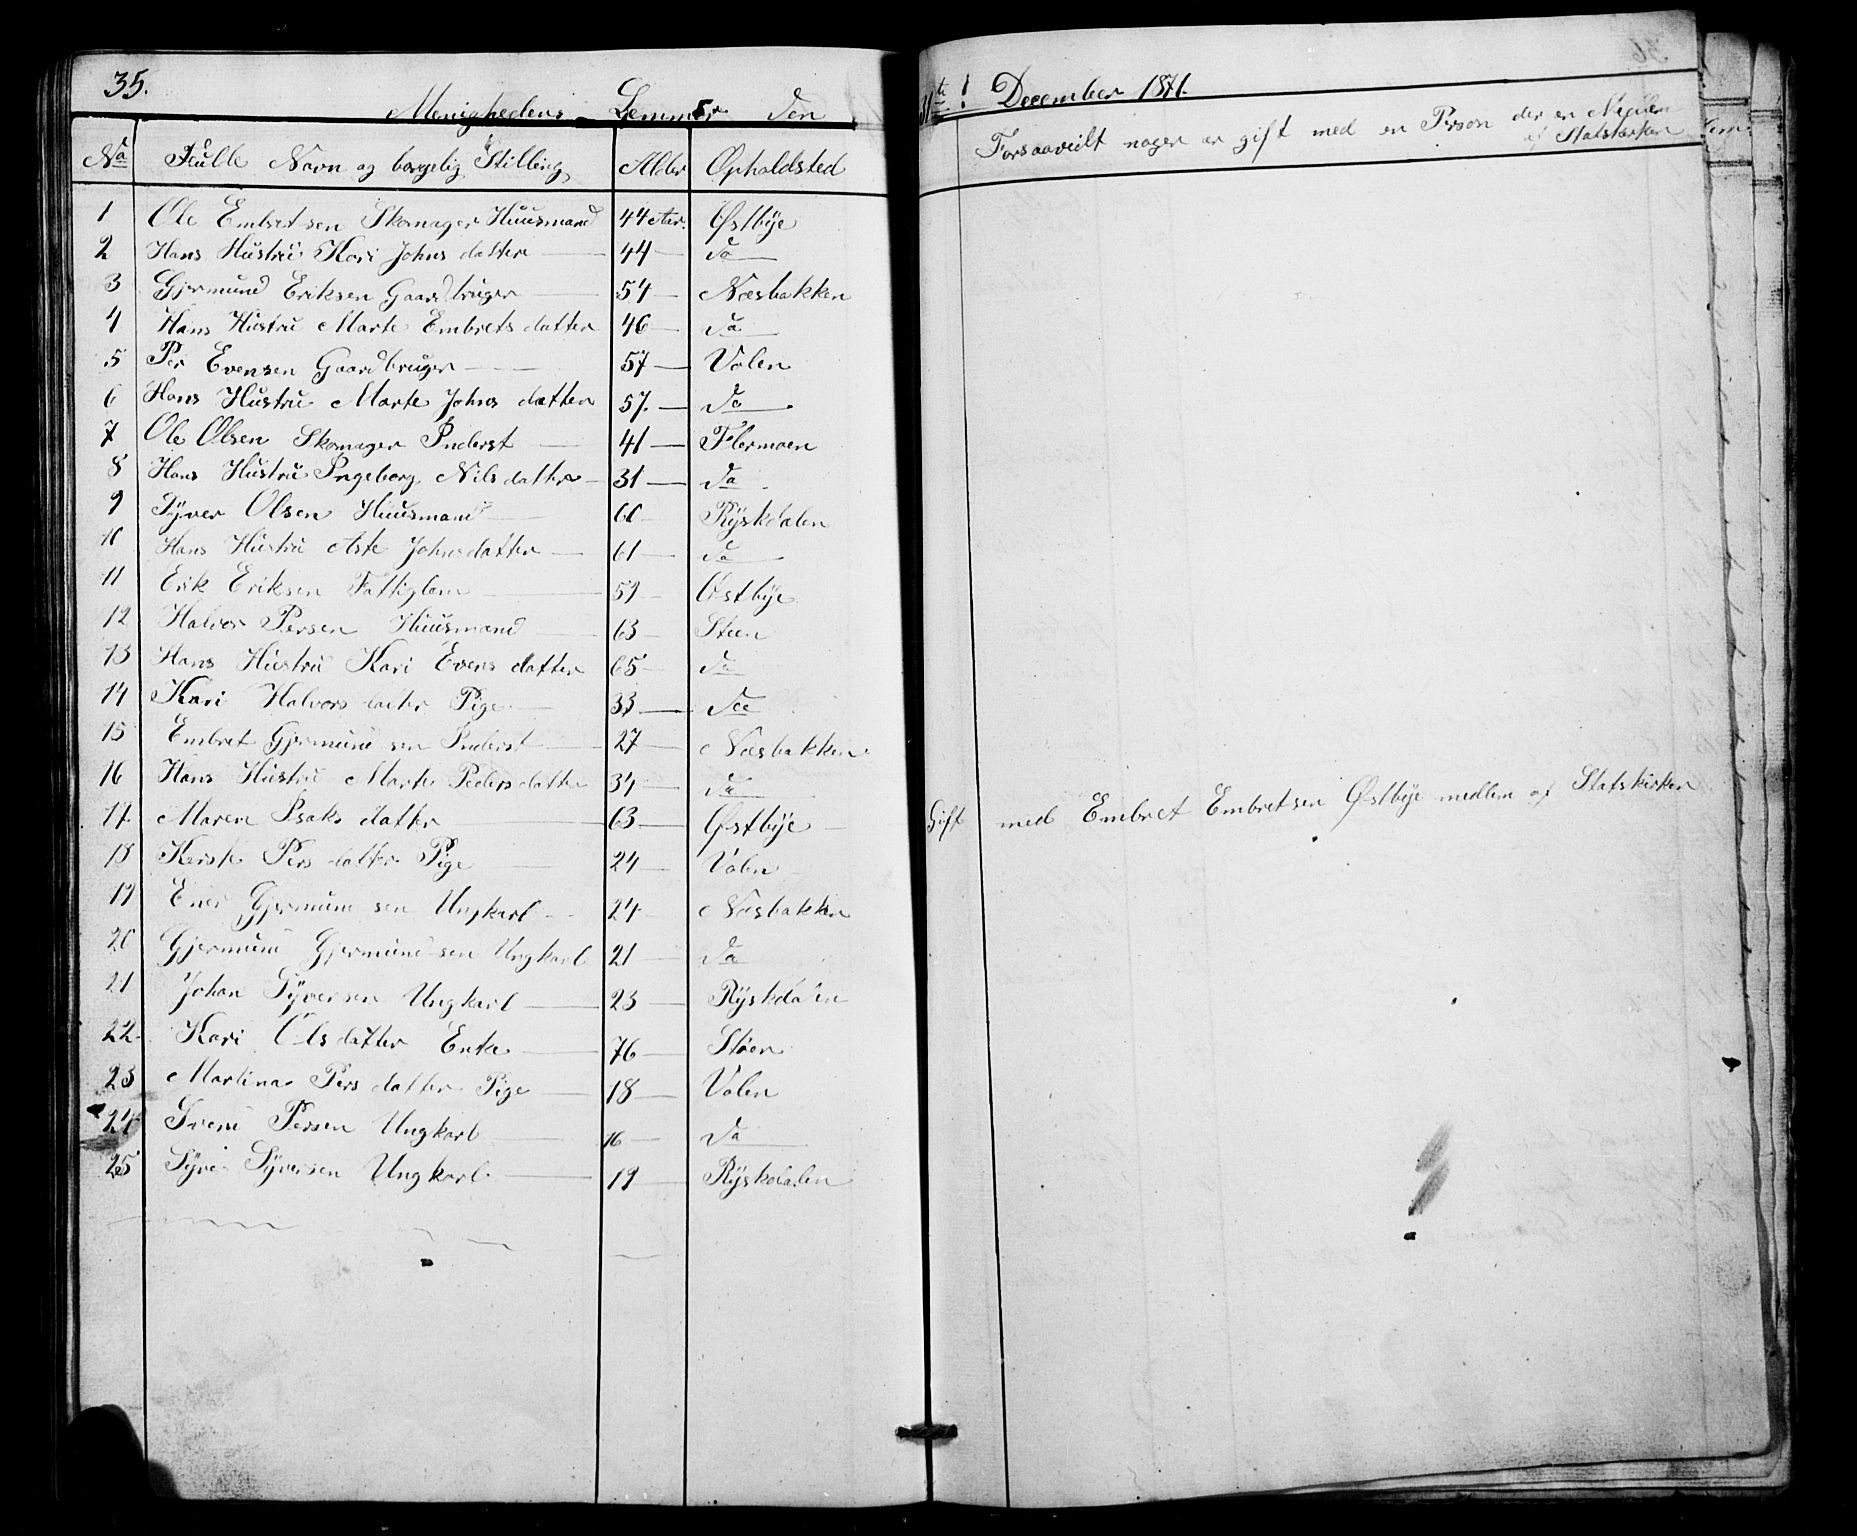 35.
Menighedens Lemmer den 31te December 1871.
No Fulle Navn og borgelig Stilling Alder Opholdsted Forsaavidt nogen er gift med en Person der er Medlem
af Statskirken
1 Ole Embretsen Skomager Huusmand 44 Aar. Østbye
2 Hans Hustru Kari Johns datter 44 Do
3 Gjermund Eriksen Gaardbruger 54 Næsbakken
4 Hans Hustru Marte Embrets datter 46 Do
5 Per Evensen Gaardbruger 57 Volen
6 Hans Hustru Marte Johns datter 57. Do
7 Ole Olsen Skomager Inderst 41 Flermoen
8 Hans Hustru Ingeborg Nils datter 31 Do
9 Syver Olsen Huusmand 60 Ryskdalen
10 Hans Hustru Aste Johnsdatter 61 Do
11 Erik Eriksen Fattiglem 59 Østbye
12 Halvor Persen Huusmand 63 Støen
13 Hans Hustru Kari Evens datter 65 Do
14 Kari Halvors datter Pige 33 Do
15 Embret Gjermund sen Inderst 27 Næsbakken
16 Hans Hustru Marte Peders datter 34 Do
17 Maren Isaks datter 63 Østbye Gift med Embret Embretsen Østbye medlem af Statskirken
18 Kersti Pers datter Pige 24 Volen
19 Ener Gjermund sen Ungkarl 24 Næsbakken
20 Gjermund Gjermund sen Ungkarl 21 Do
21 Johan Syversen Ungkarl 23 Ryskdalen
22 Kari Ols datter Enke 76 Støen
23 Martina Pers datter Pige 18 Volen
24 Svend Persen Ungkarl 16 Do
25 Syver Syversen Ungkarl 19 Ryskdalen